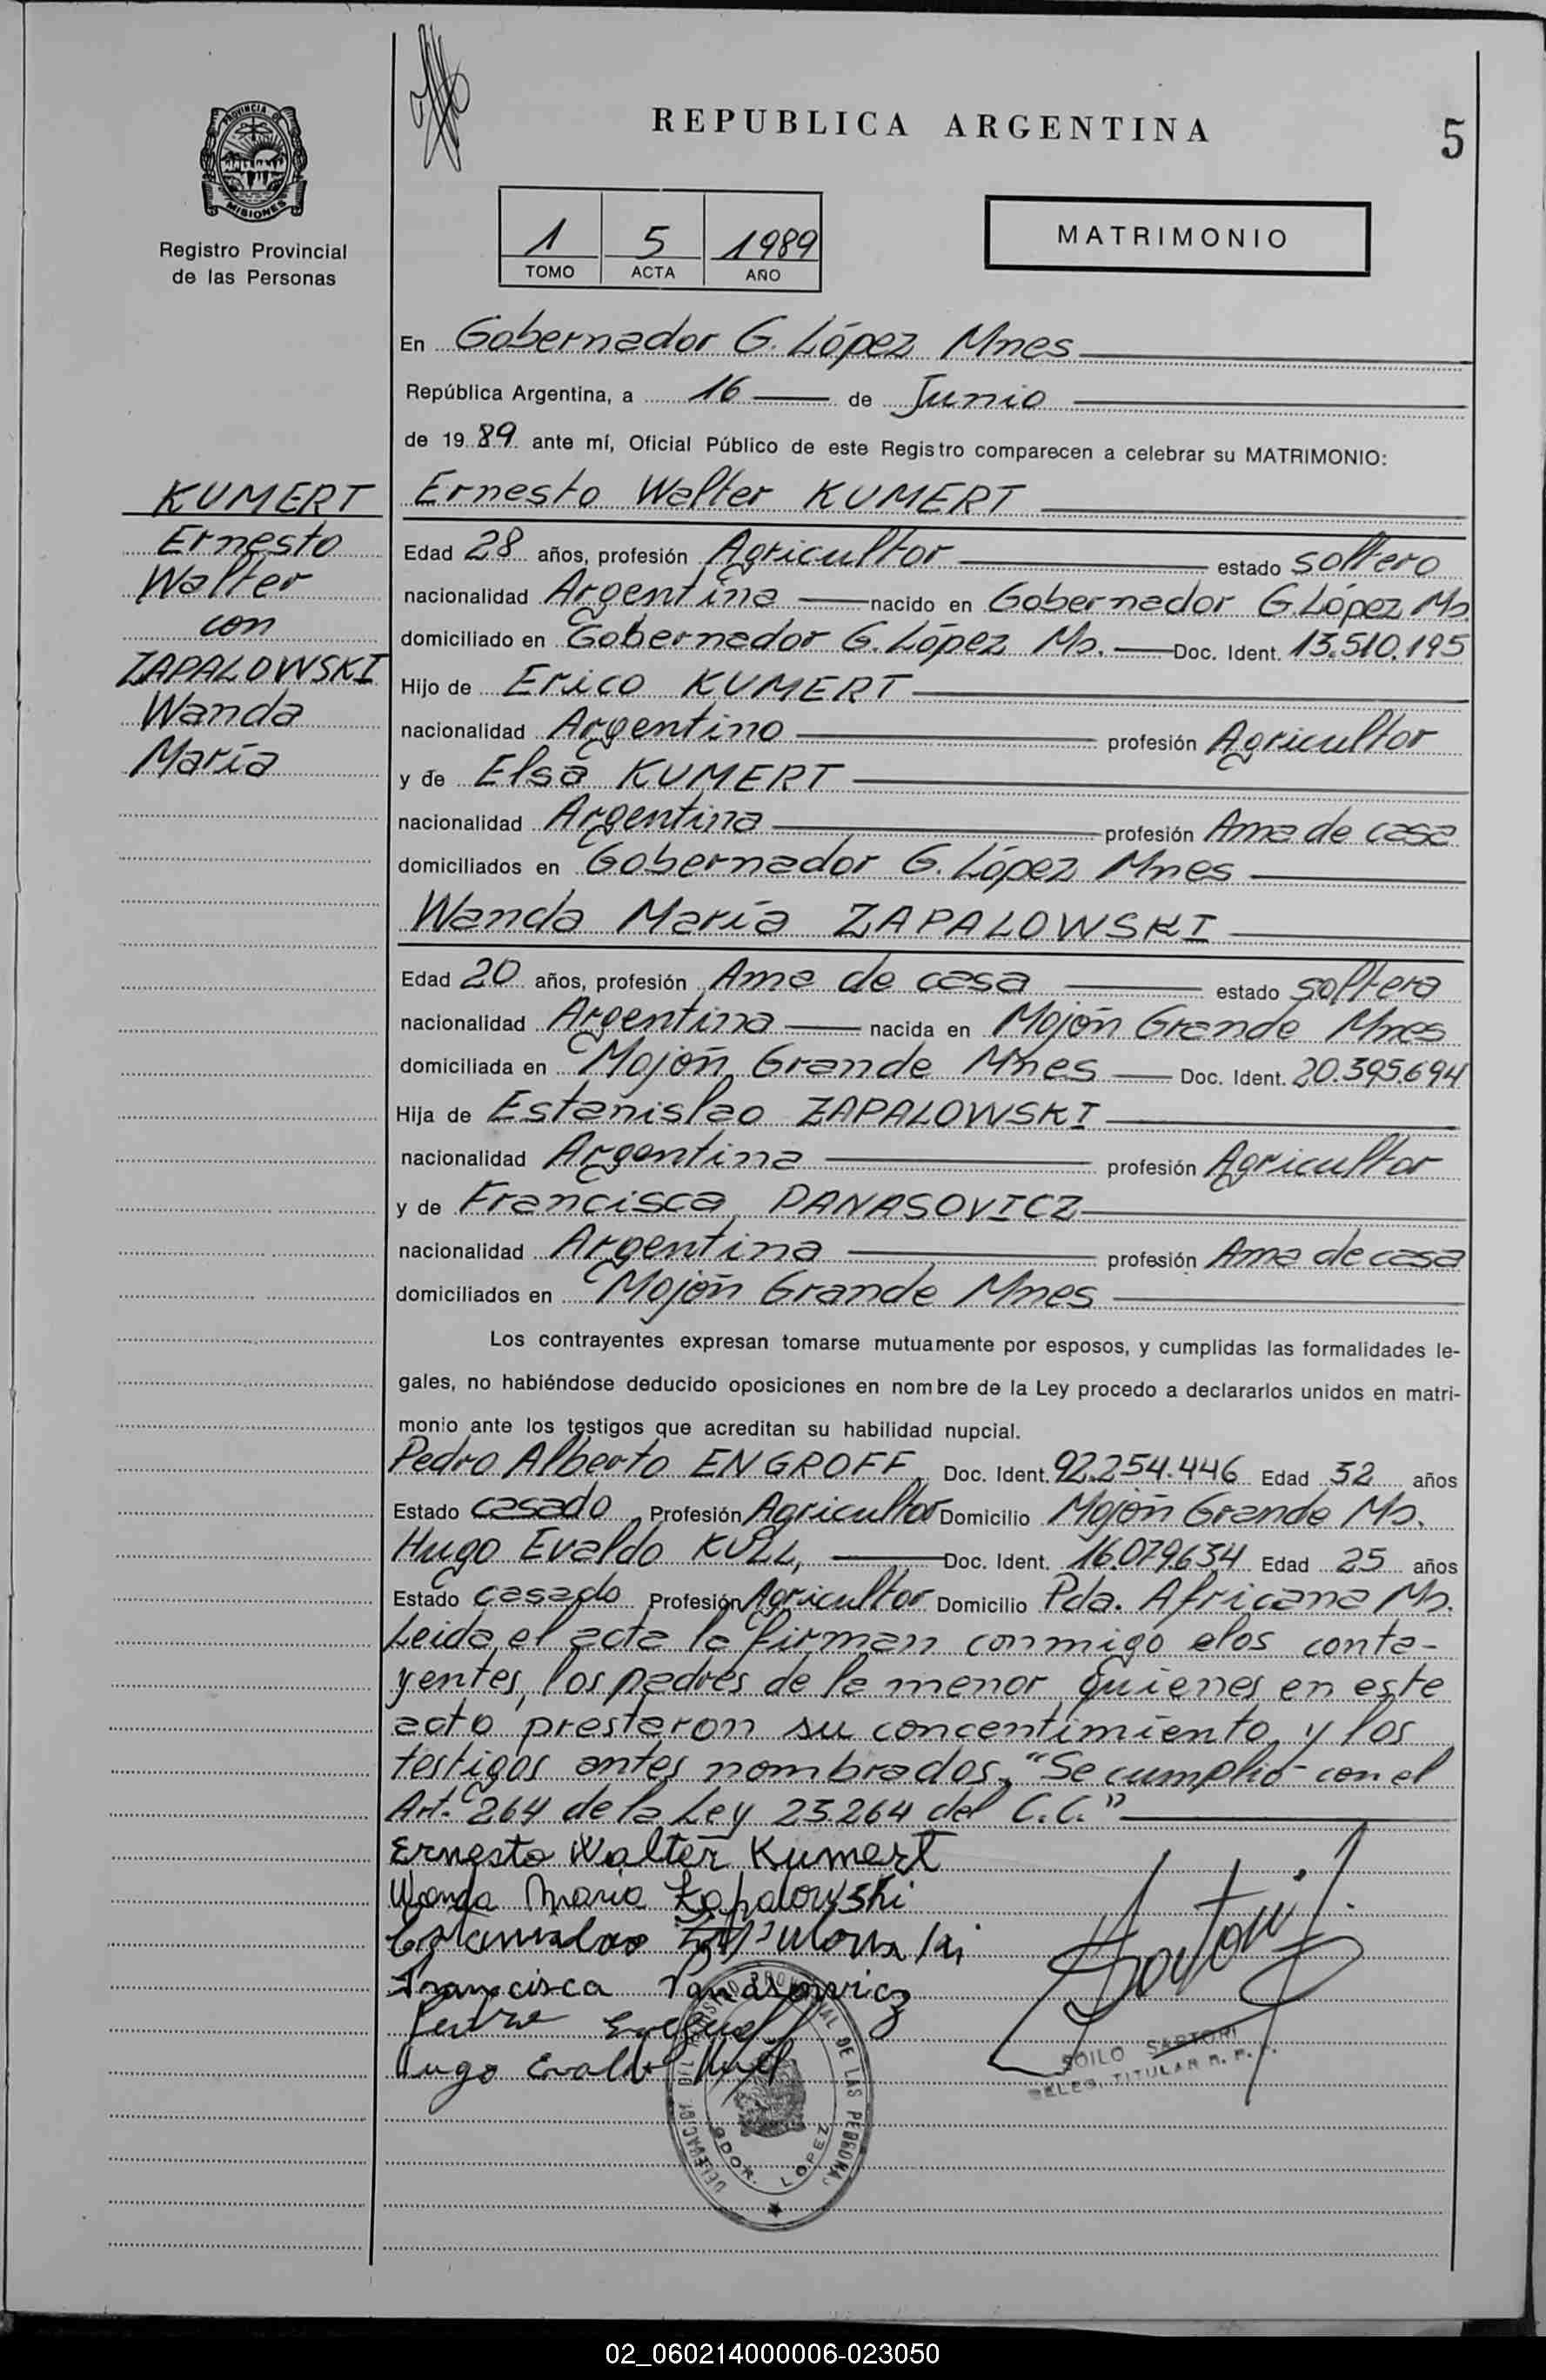 REPUBLICA ARGENTINA
5
PROVINCIA DE
MISIONES
Registro Provincial
de las Personas
1 5 1989
TOMO ACTA AÑO
MATRIMONIO
En Gobernador G. López Mnes
República Argentina, a 16 de Junio
de 19 89 ante mí, Oficial Público de este Registro comparecen a celebrar su MATRIMONIO:
KUMERT
Ernesto
Walter
con
ZAPALOWSKI
Wanda
María
Ernesto Walter KUMERT
Edad 28 años, profesión Agricultor estado soltero
nacionalidad Argentina nacido en Gobernador G. López Ms.
domiciliado en Gobernador G. López Ms. Doc. Ident. 13.510.195
Hijo de Erico KUMERT
nacionalidad Argentino profesión Agricultor
y de Elsa KUMERT
nacionalidad Argentina profesión Ama de casa
domiciliados en Gobernador G. López Mnes
Wanda María ZAPALOWSKI
Edad 20 años, profesión Ama de casa estado soltera
nacionalidad Argentina nacida en Mojón Grande Mnes
domiciliada en Mojón Grande Mnes Doc. Ident. 20.395.694
Hija de Estanislao ZAPALOWSKI
nacionalidad Argentina profesión Agricultor
y de Francisca PANASOVICZ
nacionalidad Argentina profesión Ama de casa
domiciliados en Mojón Grande Mnes
Los contrayentes expresan tomarse mutuamente por esposos, y cumplidas las formalidades le-
gales, no habiéndose deducido oposiciones en nombre de la Ley procedo a declararlos unidos en matri-
monio ante los testigos que acreditan su habilidad nupcial.
Pedro Alberto ENGROFF Doc. Ident. 92.254.446 Edad 32 años
Estado casado Profesión Agricultor Domicilio Mojón Grande Ms.
Hugo Evaldo KÜLL, Doc. Ident. 16.079.634 Edad 25 años
Estado casado Profesión Agricultor Domicilio Pda. Africana Ms.
Leida el acta la firman conmigo elos conta-
yentes, los padres de la menor quienes en este
acto prestaron su concentimiento y los
testigos antes nombrados. "Se cumplió con el
Art. 264 de la Ley 23.264 del C.C."
Ernesto Walter Kumert
Wanda Maria Zapalowski
Estanislao
Francisca Panasowicz
Hugo Evaldo Küll
SOILO SARTORI
DELEG. TITULAR R. P. P.
DELEGACION DEL REGISTRO PROVINCIAL DE LAS PERSONAS
GDOR. LOPEZ
02_060214000006-023050